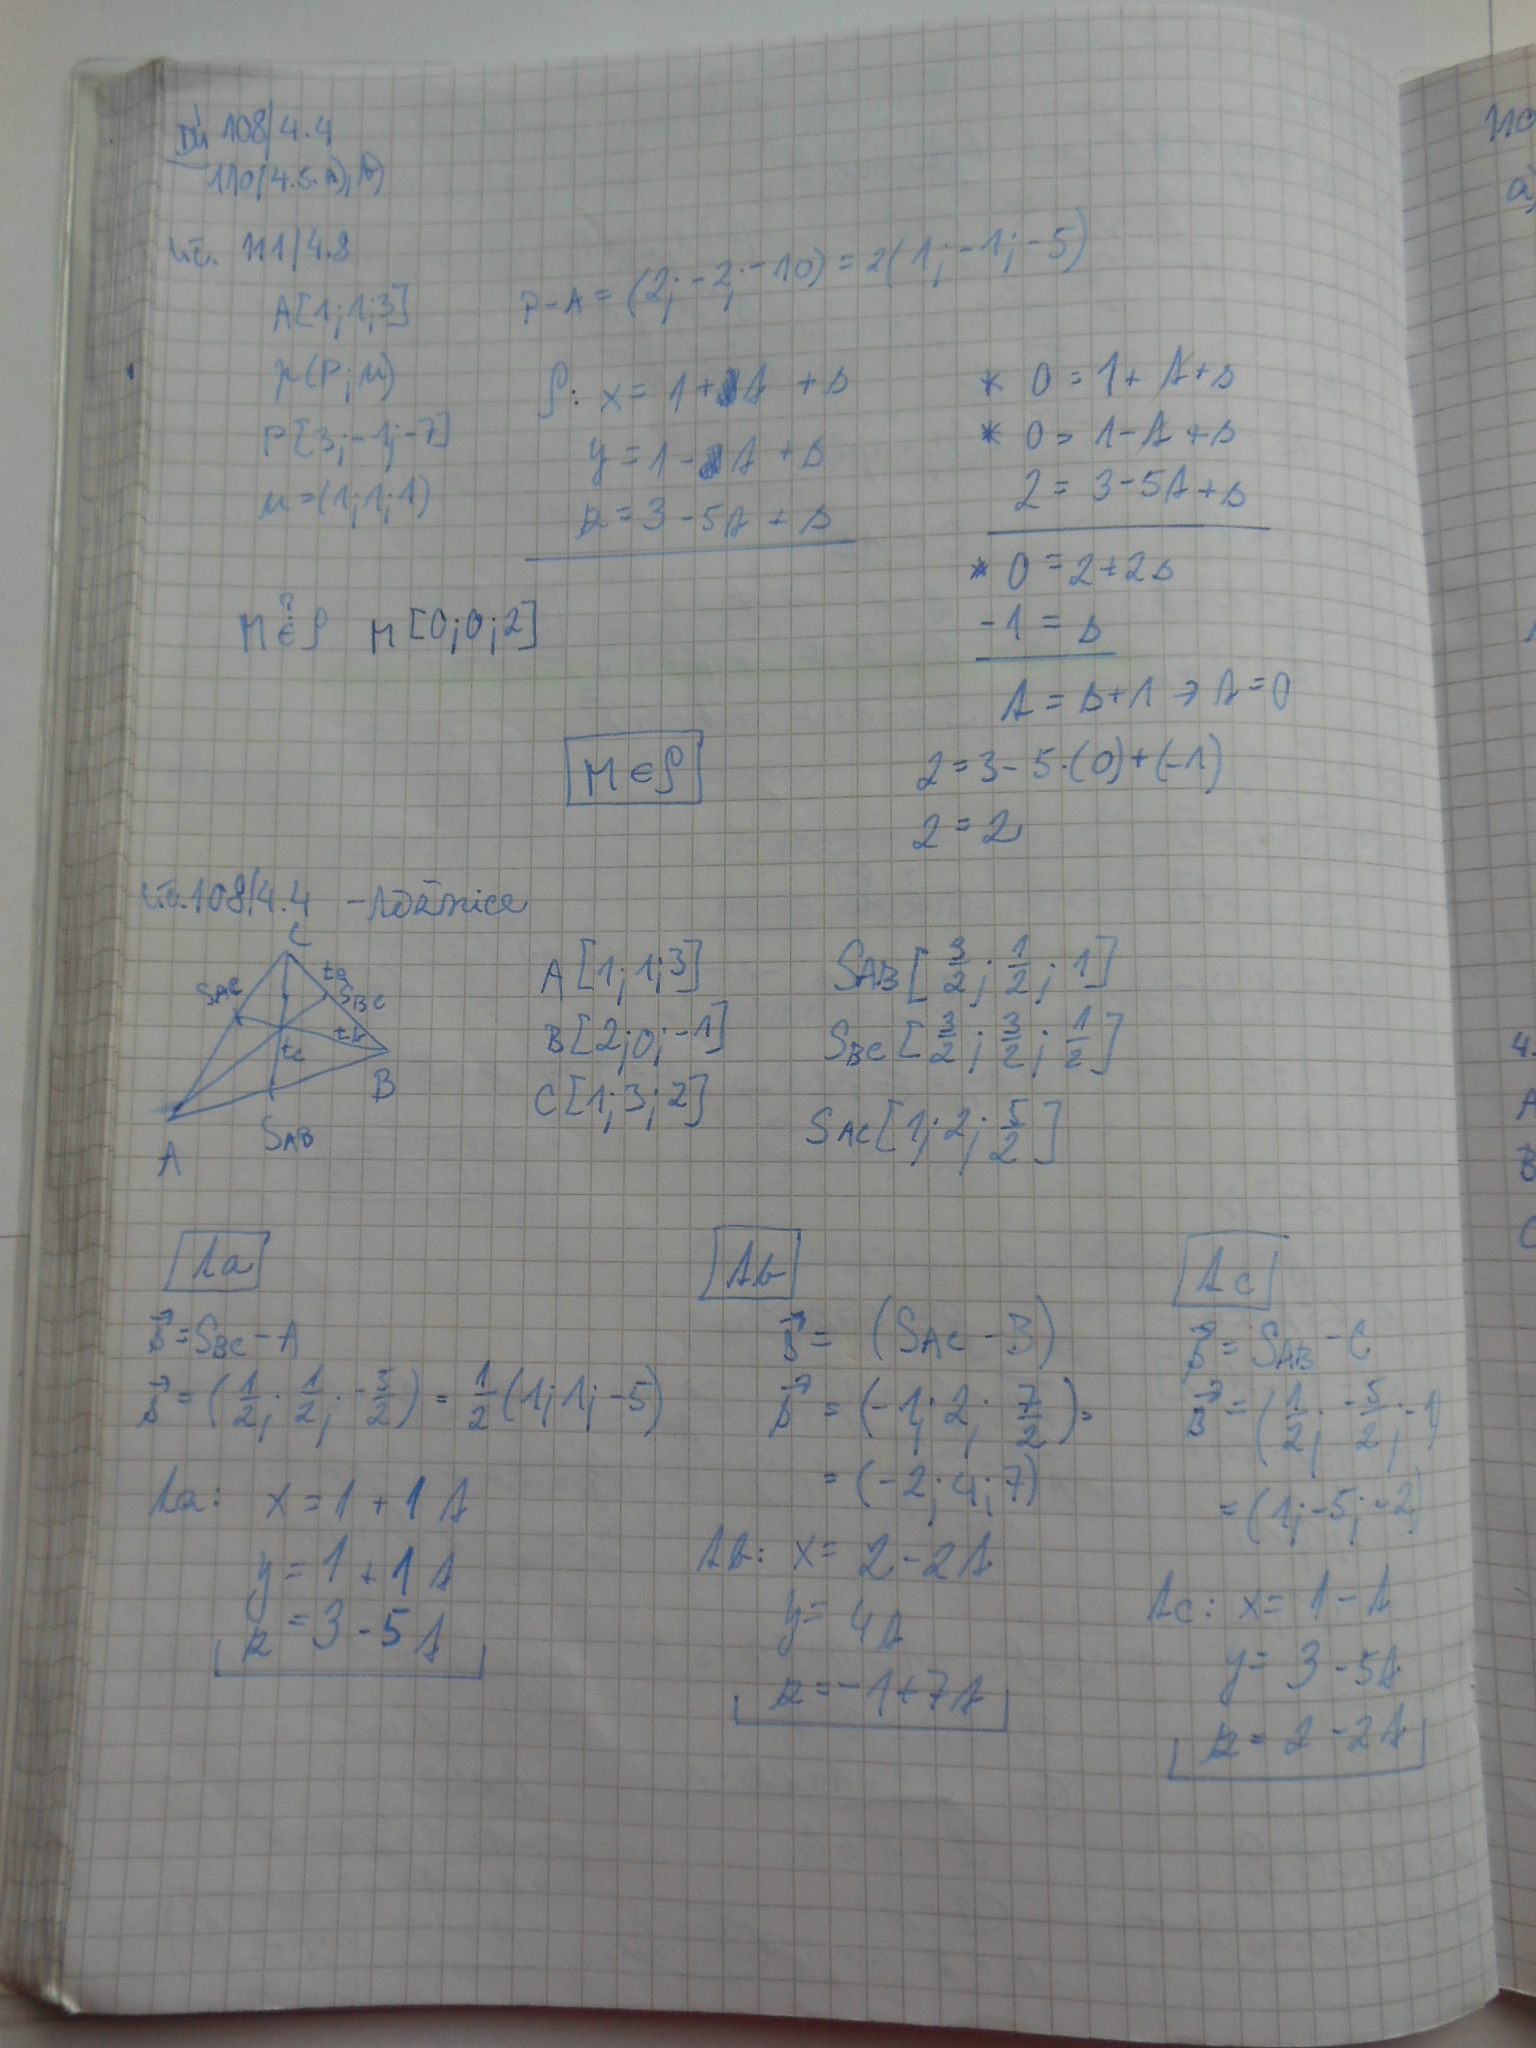 DÚ 108/4.4
110/4.5.a), b)
uč. 111/4.8
A[1;1;3]
p(P;u)
P[3;-1;-7]
u=(1;1;1)
P-A = (2;-2;-10) = 2(1;-1;-5)
ρ: x = 1+t +s
y = 1-t +s
z = 3-5t+s
* 0 = 1+t+s
* 0 = 1-t+s
2 = 3-5t+s
* 0 = 2+2s
-1 = s
t = s+1 → t=0
2=3-5·(0)+(-1)
2 = 2
M ∈? ρ M[0;0;2]
M ∈ ρ
uč. 108/4.4 - těžnice
C
ta
SAC
SBC
tb
tc
B
SAB
A
A[1;1;3]
B[2;0;-1]
C[1;3;2]
SAB[3/2;1/2;1]
SBC[3/2;3/2;1/2]
SAC[1;2;5/2]
ta
s⃗=SBC-A
s⃗ = (1/2;1/2;-5/2) = 1/2(1;1;-5)
ta: x=1+1t
y=1+1t
z=3-5t
tb
s⃗ = (SAC-B)
s⃗ = (-1;2;7/2)=
=(-2;4;7)
tb: x= 2-2t
y= 4t
z=-1+7t
tc
s⃗ = SAB-C
s⃗ = (1/2;-5/2;-1)
=(1;-5;-2)
tc: x= 1-t
y= 3-5t
z= 2-2t
110
a)
4.
A
B
C